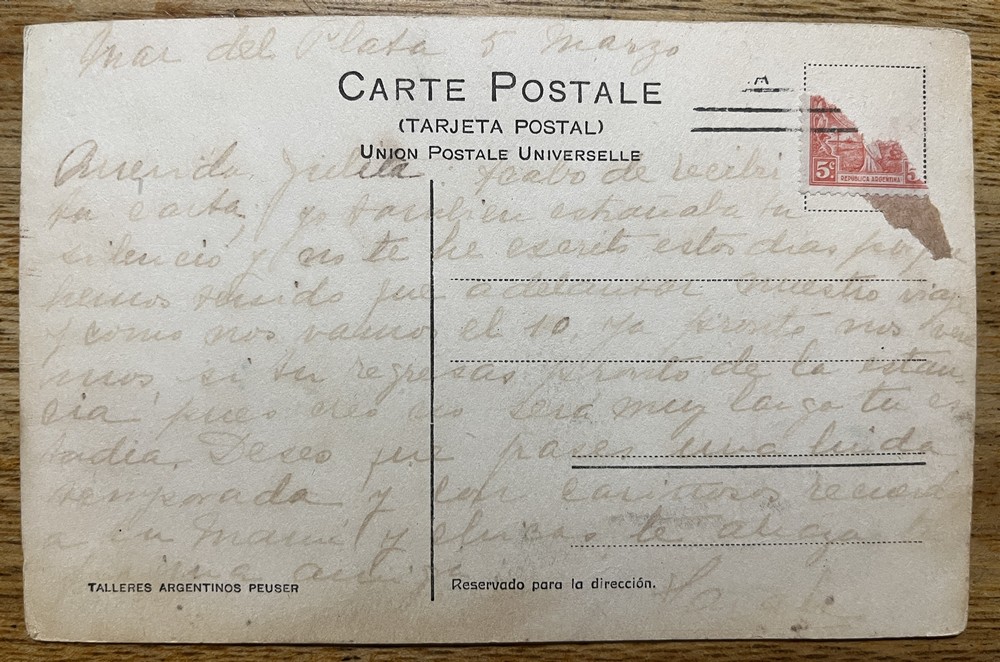 Mar del Plata 5 Marzo
CARTE POSTALE
(TARJETA POSTAL)
UNION POSTALE UNIVERSELLE
5c REPUBLICA ARGENTINA 5
Querida Julita. Acabo de recibi
tu carta, yo tambien estrañaba tu
silencio y no te he escrito estos dias porqu
hemos tenido que adelantar nuestro viaj
y como nos vamos el 10, ya pronto nos vere
mos, si tu regresas pronto de la estan
cia pues creo no será muy larga tu es
tadia. Deseo que pases una linda
temporada y con cariñosos recuerd
a tu Mamá y chicas te abraza
amiga
TALLERES ARGENTINOS PEUSER
Reservado para la dirección.